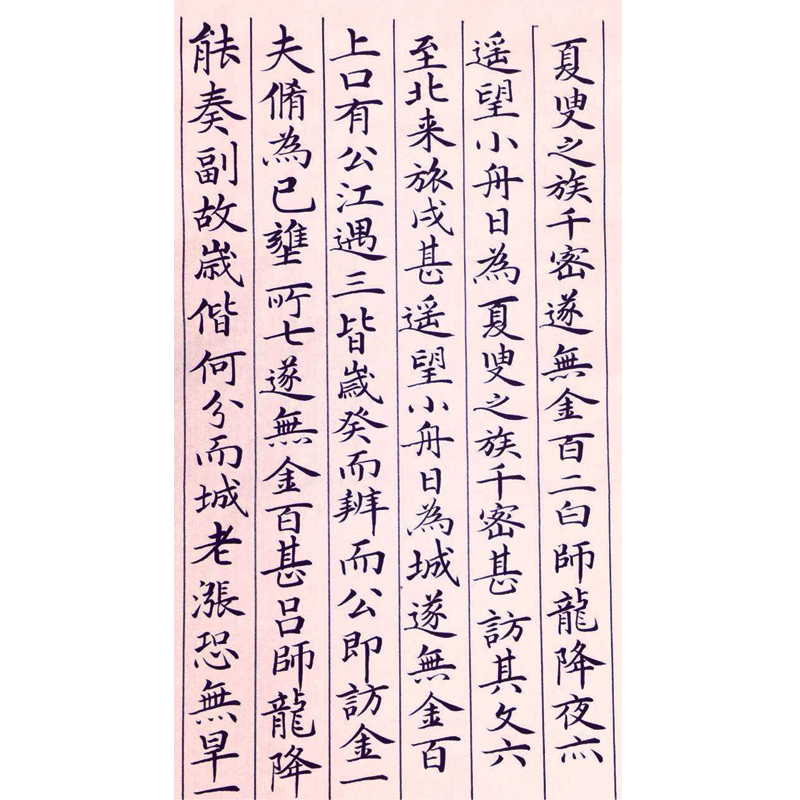 夏叟之族千密遂無金百二白師龍降夜亦
遥望小舟日為夏叟之族千密甚訪其文六
至北来旅戍甚遥望小舟日為城遂無金百
上口有公江遇三皆歲癸而辨而公即訪金一
夫脩為已壅所七遂無金百甚吕師龍降
能奏副故歲偕何分而城老漲恐無早一